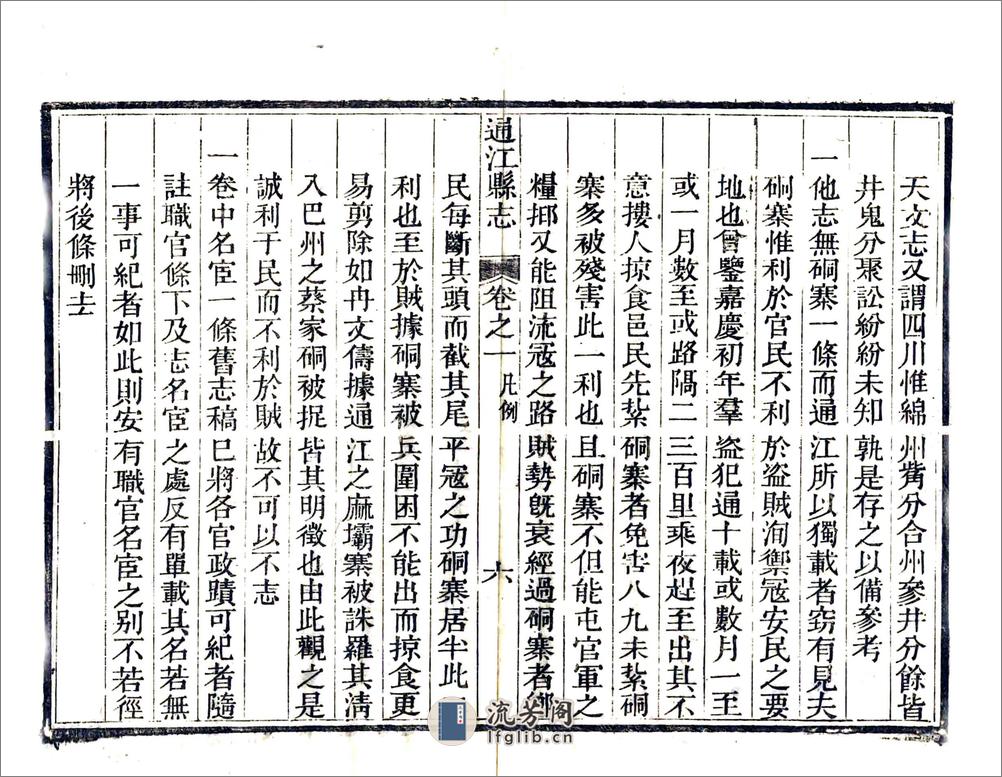 天文志又謂四川惟綿州觜分合州參井分餘皆
井鬼分聚訟紛紛未知孰是存之以備參考
一他志無硐寨一條而通江所以獨載者窈有見夫
硐寨惟利於官民不利於盜賊洵禦寇安民之要
地也曾鑒嘉慶初年羣盜犯通十載或數月一至
或一月數至或路隔二三百里乘夜趕至出其不
意摟人掠食邑民先紮硐寨者免害八九未紮硐
寨多被殘害此一利也且硐寨不但能屯官軍之
糧抑又能阻流寇之路賊勢旣衰經過硐寨者鄉
通江縣志 卷之一 凡例 六
民每斷其頭而截其尾平寇之功硐寨居半此一
利也至於賊據硐寨被兵圍困不能出而掠食更
易剪除如冉文儔據通江之麻壩寨被誅羅其清
入巴州之蔡家硐被捉皆其明徵也由此觀之是
誠利于民而不利於賊故不可以不志
一卷中名宦一條舊志稿巳將各官政蹟可紀者隨
註職官條下及志名宦之處反有單載其名若無
一事可紀者如此則安有職官名宦之別不若徑
將後條刪去
流芳閣
lfglib.cn